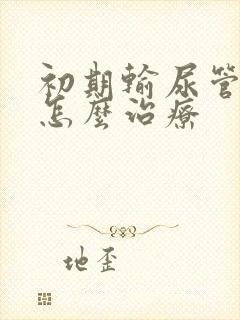 初期輸尿管
怎麼治療
地歪